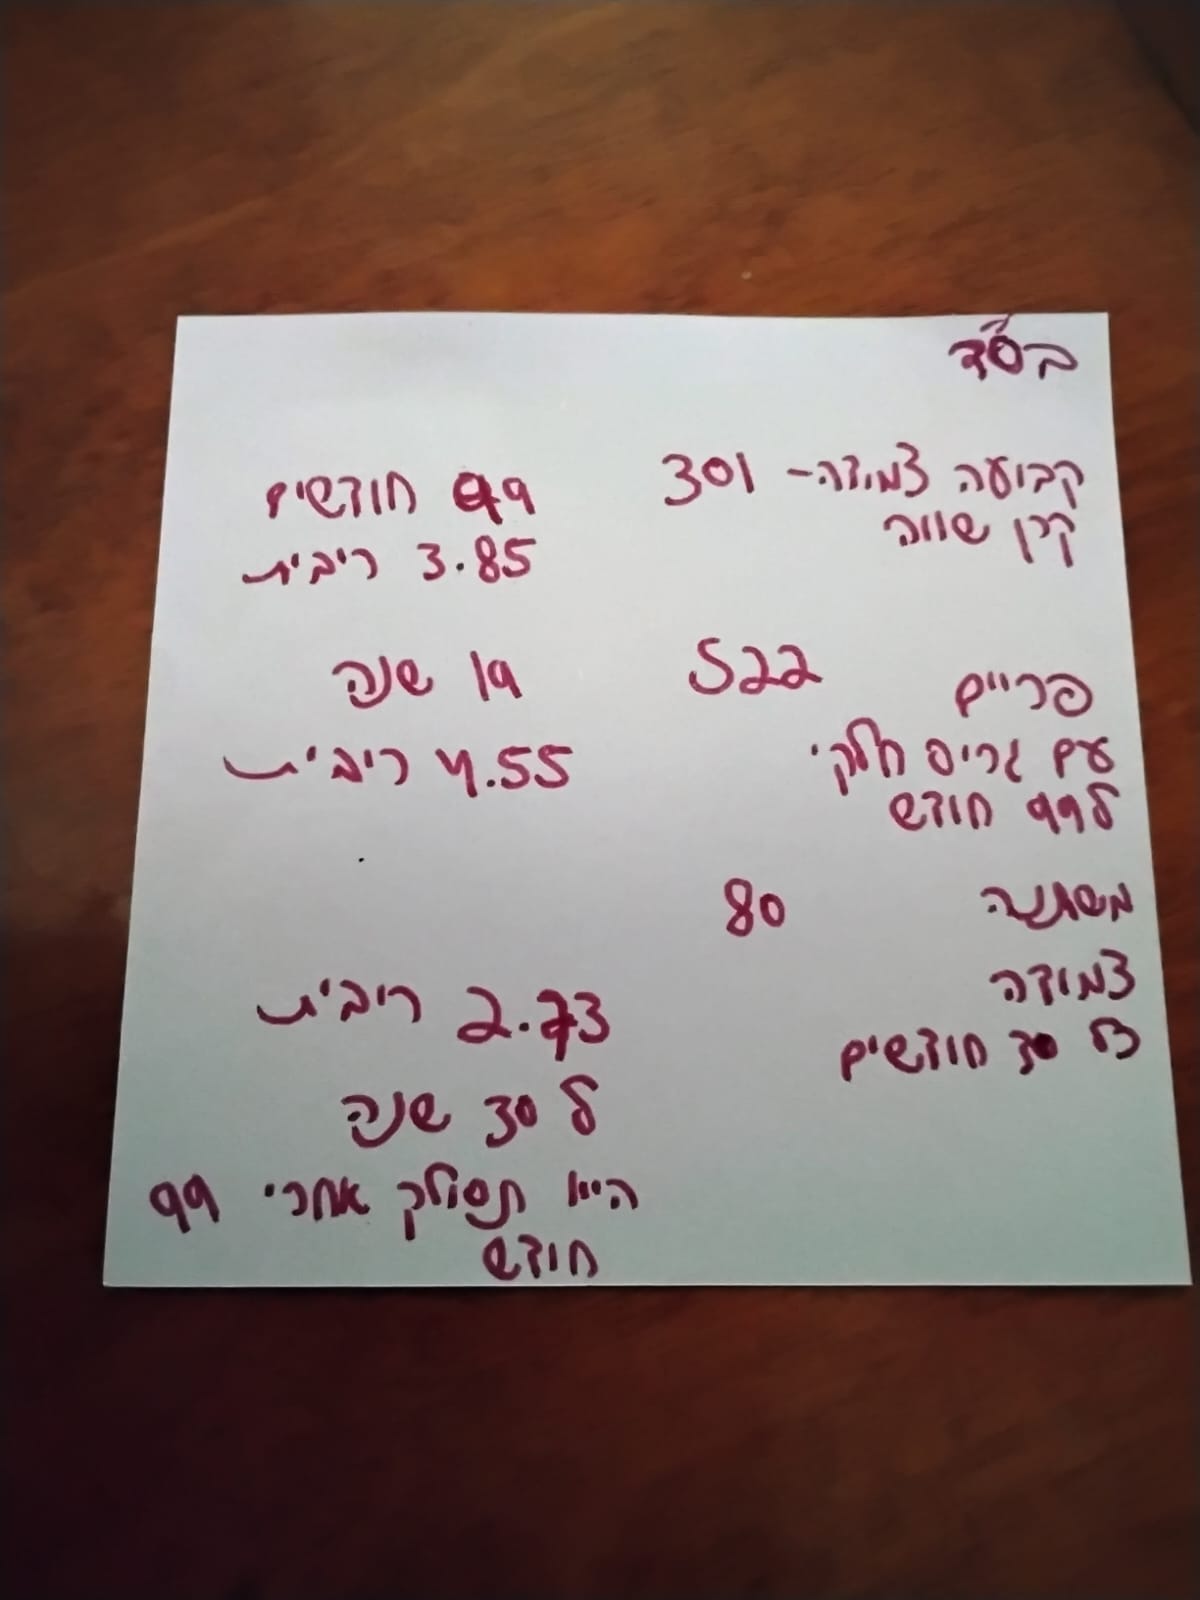 בס"ד
קבועה צמודה- 301
99 חודשים
קרן שווה
3.85 ריבית
פריים 522
19 שנה
עם גרייס חלקי
4.55 ריבית
ל99 חודש
משתנה 80
צמודה
2.73 ריבית
כל 30 חודשים
ל 30 שנה
תסולק אחרי 99
חודש